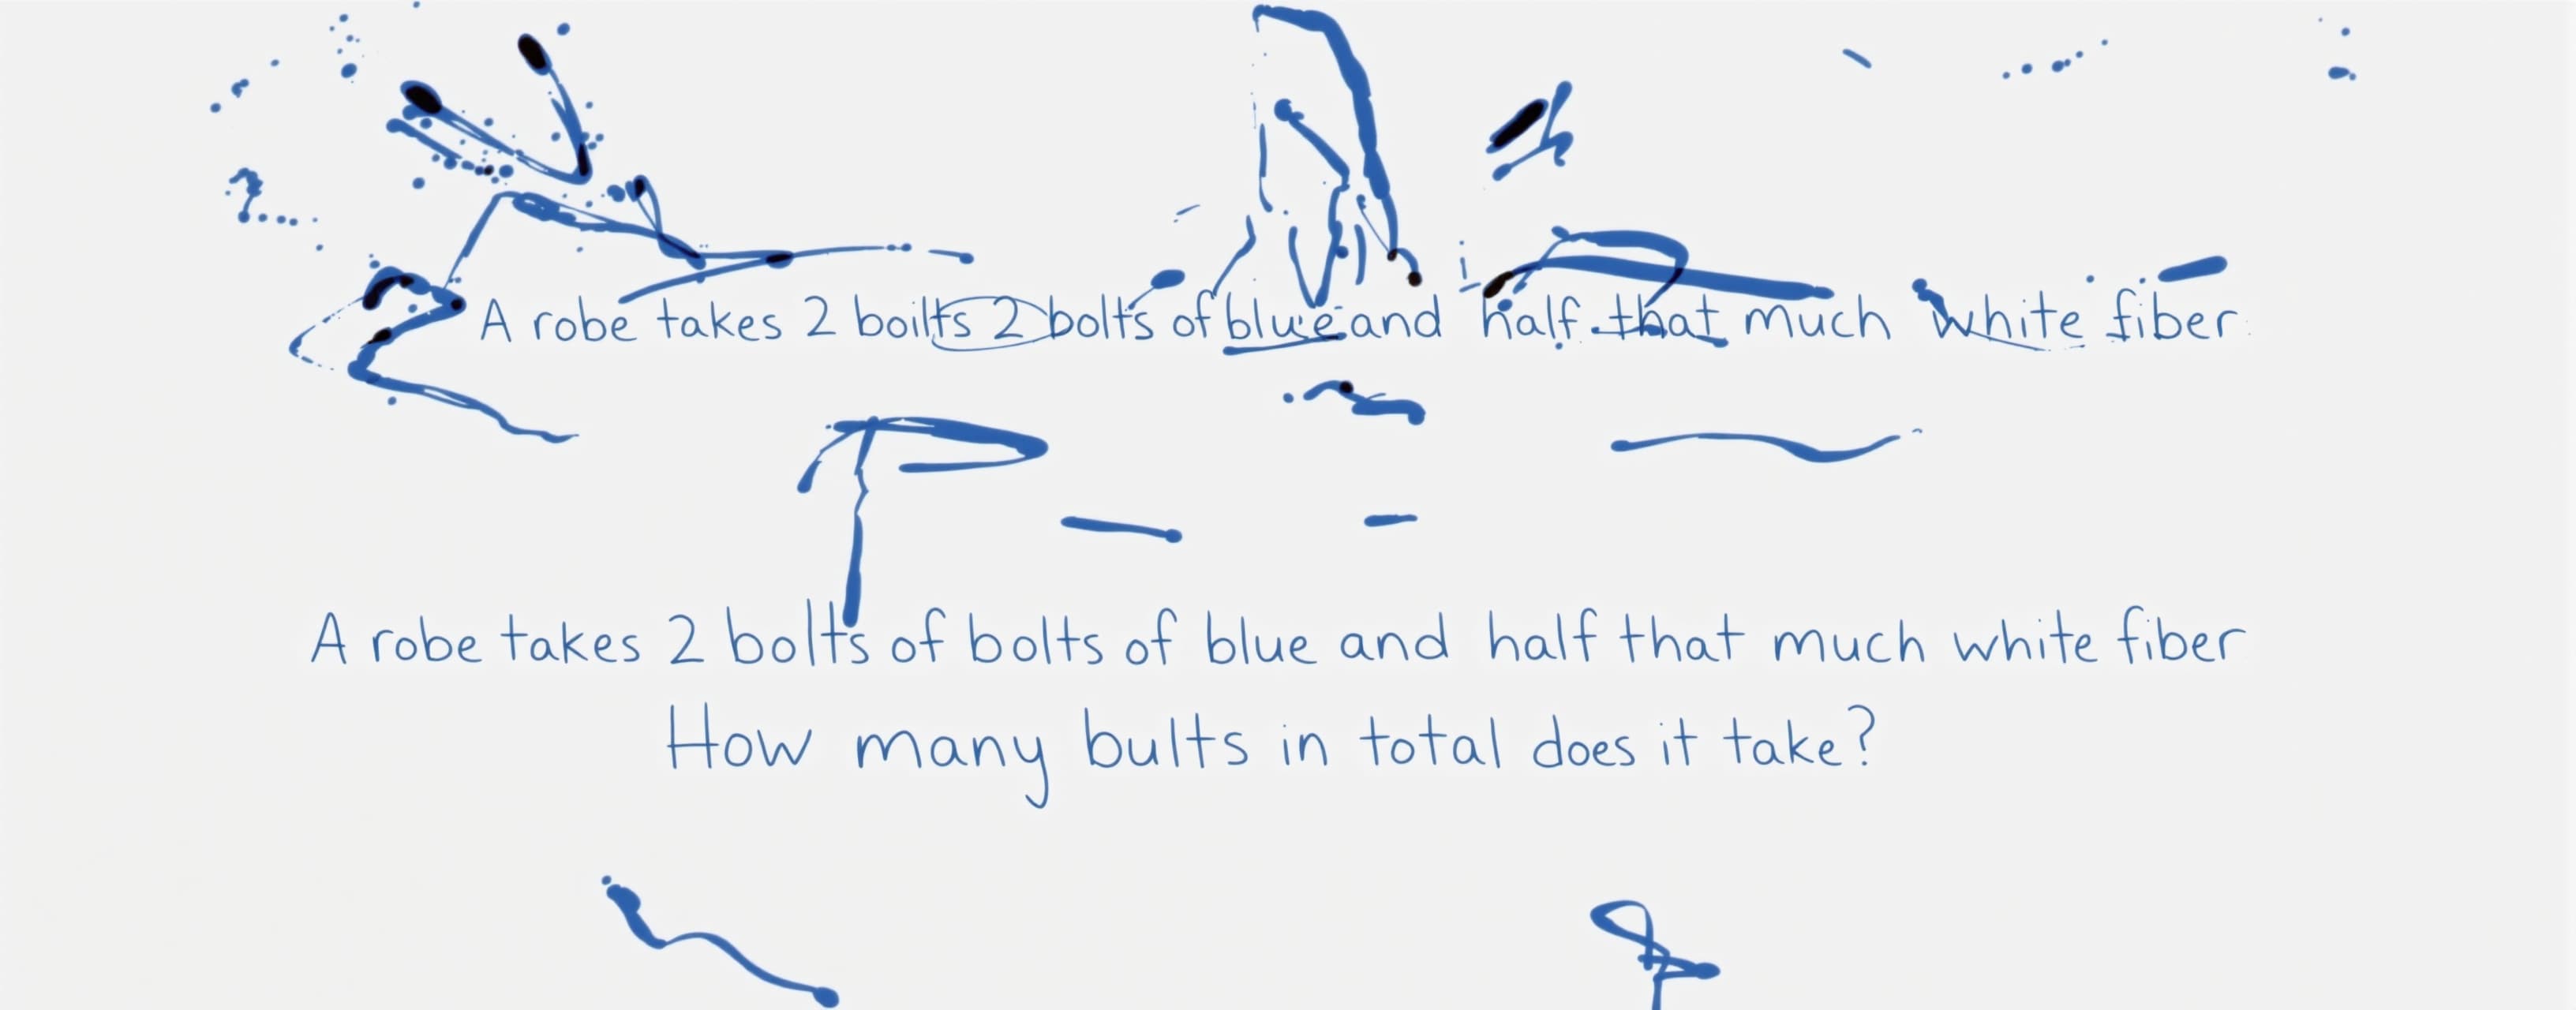 A robe takes 2 boilts 2 bolts of blue and half that much white fiber
A robe takes 2 bolts of bolts of blue and half that much white fiber
How many bults in total does it take?